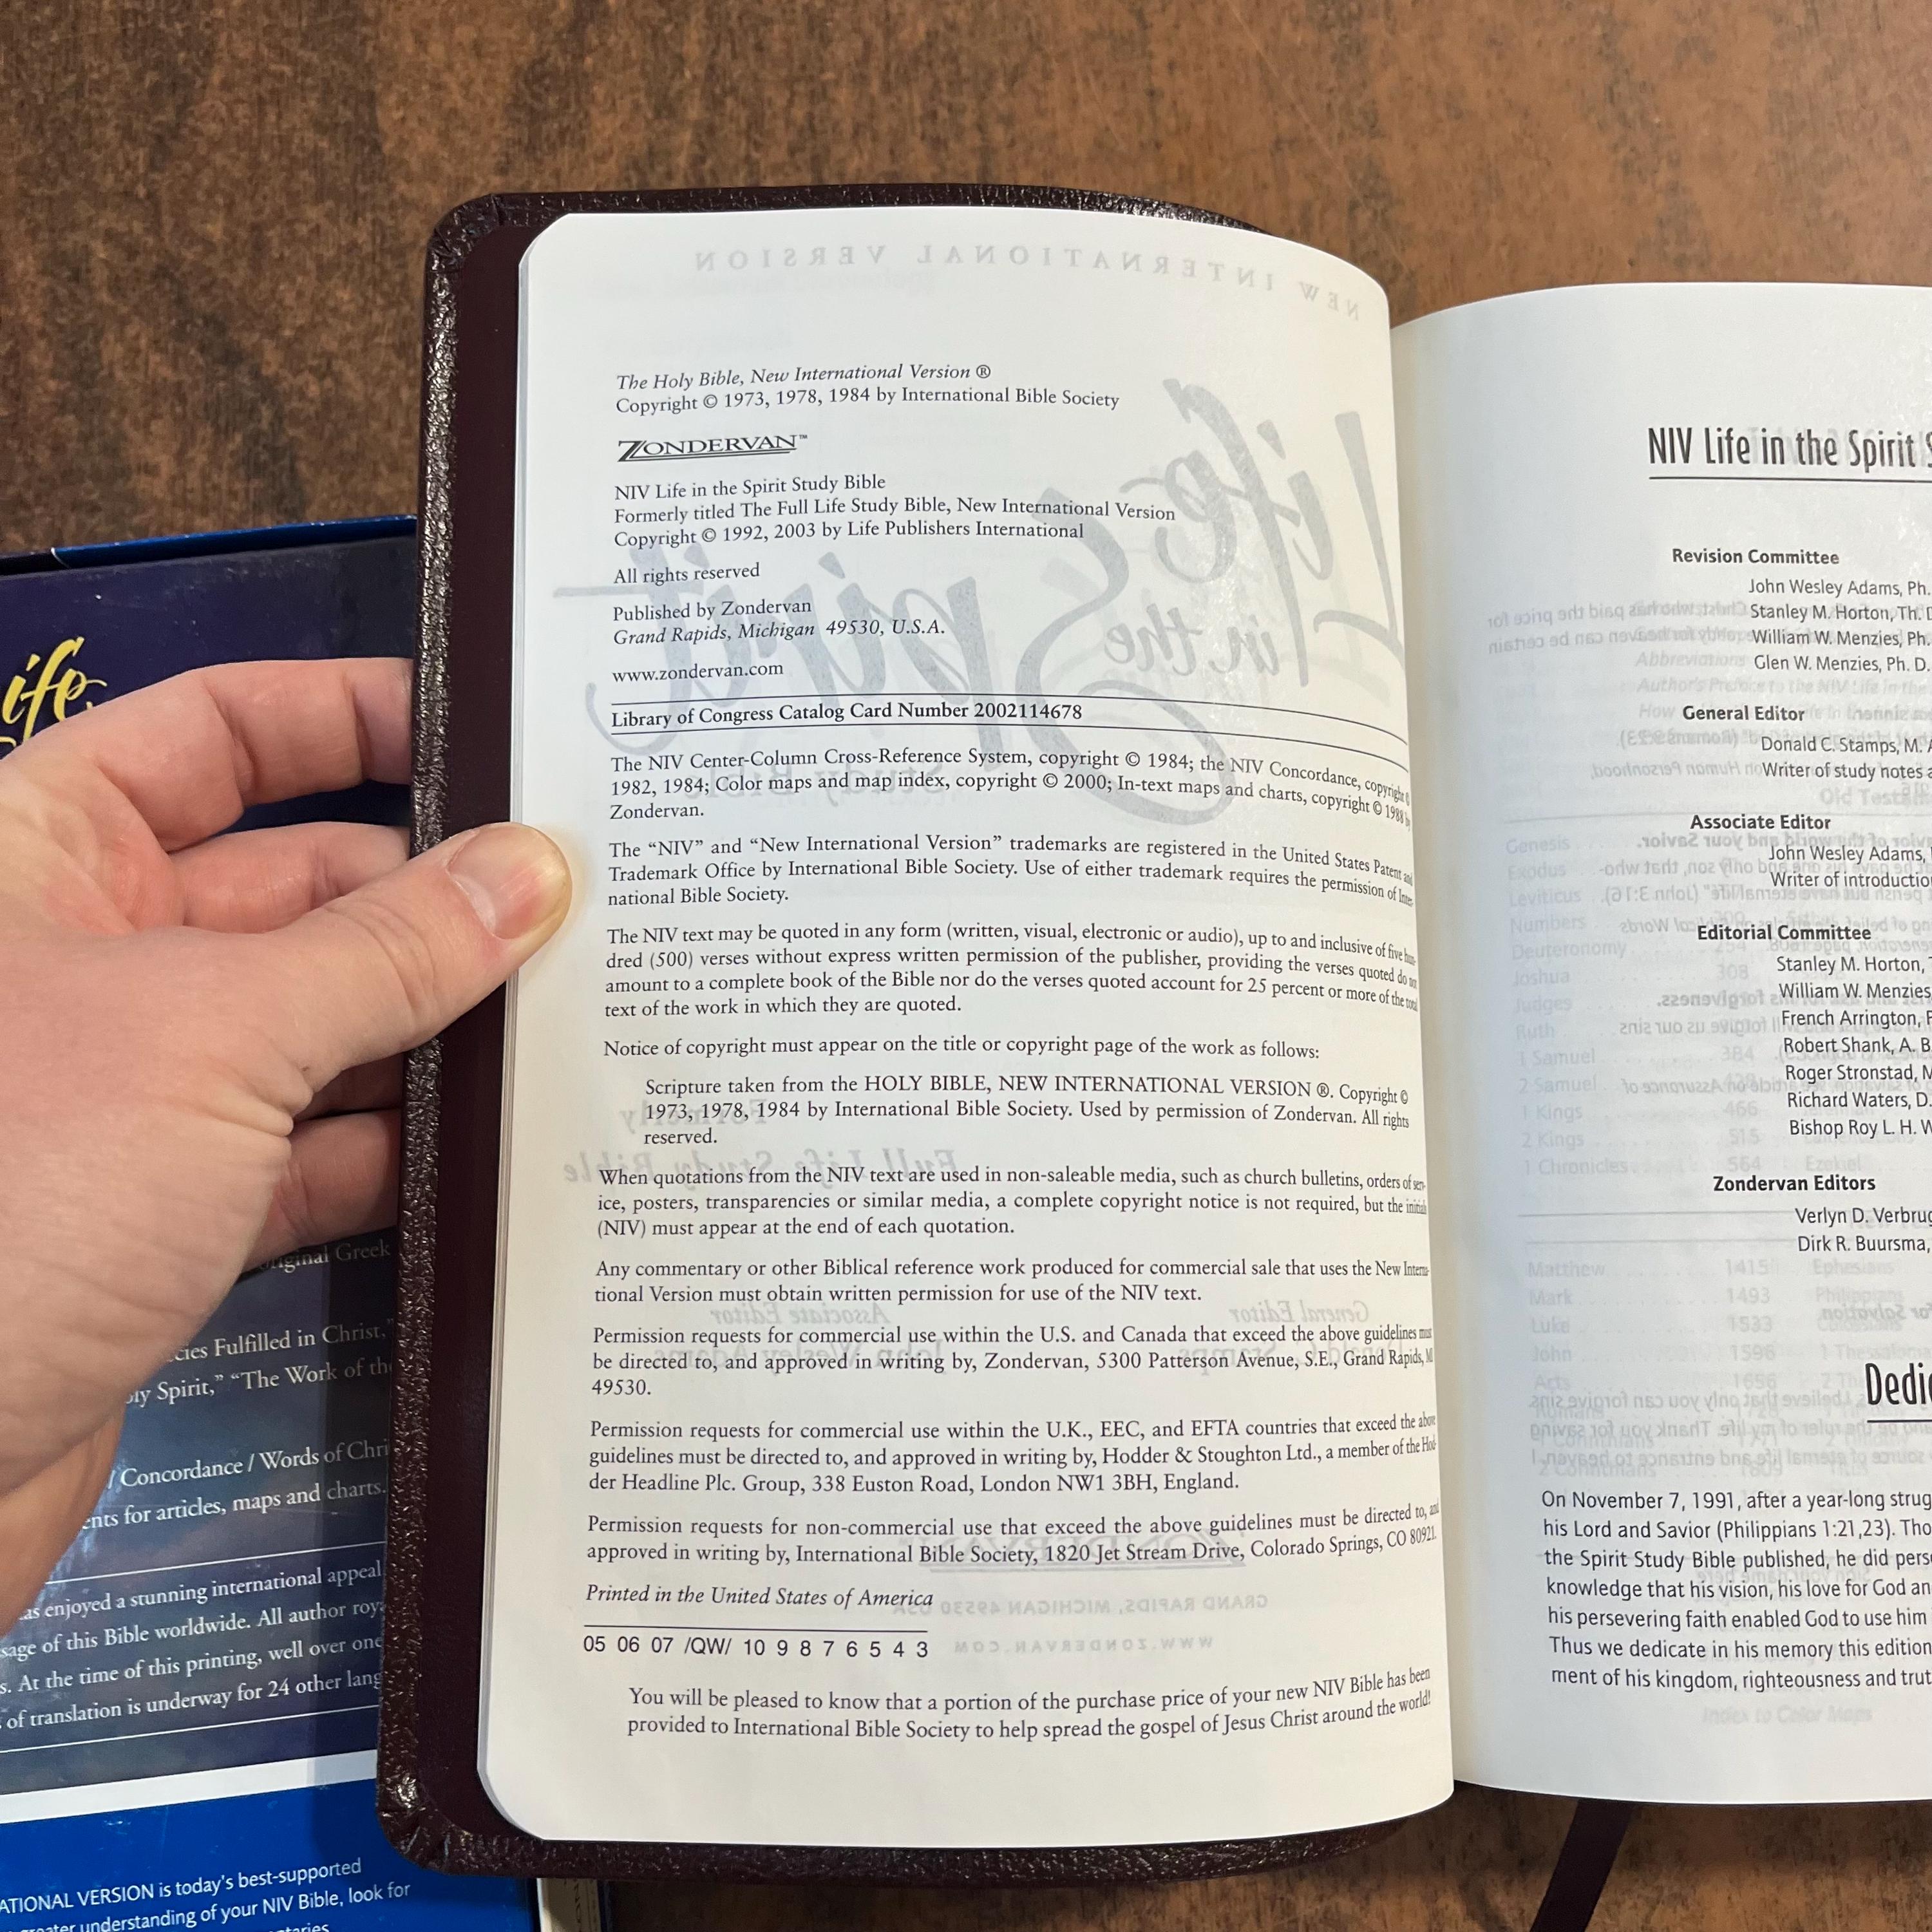 The Holy Bible, New International Version ®
Copyright © 1973, 1978, 1984 by International Bible Society
ZONDERVAN™
NIV Life in the Spirit Study Bible
Formerly titled The Full Life Study Bible, New International Version
Copyright © 1992, 2003 by Life Publishers International
All rights reserved
Published by Zondervan
Grand Rapids, Michigan 49530, U.S.A.
www.zondervan.com
Library of Congress Catalog Card Number 2002114678
The NIV Center-Column Cross-Reference System, copyright © 1984; the NIV Concordance, copyright ©
1982, 1984; Color maps and map index, copyright © 2000; In-text maps and charts, copyright © 1988 by
Zondervan.
The “NIV” and “New International Version” trademarks are registered in the United States Patent and
Trademark Office by International Bible Society. Use of either trademark requires the permission of Inter-
national Bible Society.
The NIV text may be quoted in any form (written, visual, electronic or audio), up to and inclusive of five hun-
dred (500) verses without express written permission of the publisher, providing the verses quoted do not
amount to a complete book of the Bible nor do the verses quoted account for 25 percent or more of the total
text of the work in which they are quoted.
Notice of copyright must appear on the title or copyright page of the work as follows:
Scripture taken from the HOLY BIBLE, NEW INTERNATIONAL VERSION ®. Copyright ©
1973, 1978, 1984 by International Bible Society. Used by permission of Zondervan. All rights
reserved.
When quotations from the NIV text are used in non-saleable media, such as church bulletins, orders of serv-
ice, posters, transparencies or similar media, a complete copyright notice is not required, but the initials
(NIV) must appear at the end of each quotation.
Any commentary or other Biblical reference work produced for commercial sale that uses the New Interna-
tional Version must obtain written permission for use of the NIV text.
Permission requests for commercial use within the U.S. and Canada that exceed the above guidelines must
be directed to, and approved in writing by, Zondervan, 5300 Patterson Avenue, S.E., Grand Rapids, MI
49530.
Permission requests for commercial use within the U.K., EEC, and EFTA countries that exceed the above
guidelines must be directed to, and approved in writing by, Hodder & Stoughton Ltd., a member of the Hod-
der Headline Plc. Group, 338 Euston Road, London NW1 3BH, England.
Permission requests for non-commercial use that exceed the above guidelines must be directed to, and
approved in writing by, International Bible Society, 1820 Jet Stream Drive, Colorado Springs, CO 80921.
Printed in the United States of America
05 06 07 /QW/ 10 9 8 7 6 5 4 3
You will be pleased to know that a portion of the purchase price of your new NIV Bible has been
provided to International Bible Society to help spread the gospel of Jesus Christ around the world!
NIV Life in the Spirit
Revision Committee
John Wesley Adams, Ph.
Stanley M. Horton, Th.
William W. Menzies, Ph.
Glen W. Menzies, Ph. D.
General Editor
Donald C. Stamps, M.
Writer of study notes
Associate Editor
John Wesley Adams,
Writer of
Editorial Committee
Stanley M. Horton,
William W. Menzies,
French Arrington,
Robert Shank, A. B.
Roger Stronstad,
Richard Waters, D.
Bishop Roy L. H.
Zondervan Editors
Verlyn D.
Dirk R. Buursma,
On November 7, 1991, after a year-long
his Lord and Savior (Philippians 1:21,23).
the Spirit Study Bible published, he did
knowledge that his vision, his love for God
his persevering faith enabled God to use him
Thus we dedicate in his memory this edition
ment of his kingdom, righteousness and
Greek
Fulfilled in Christ,”
Spirit,” “The Work of
/ Concordance / Words of
for articles, maps and charts.
enjoyed a stunning international appeal
of this Bible worldwide. All author
At the time of this printing, well over one
of translation is underway for 24 other
VERSION is today's best-supported
understanding of your NIV Bible, look for